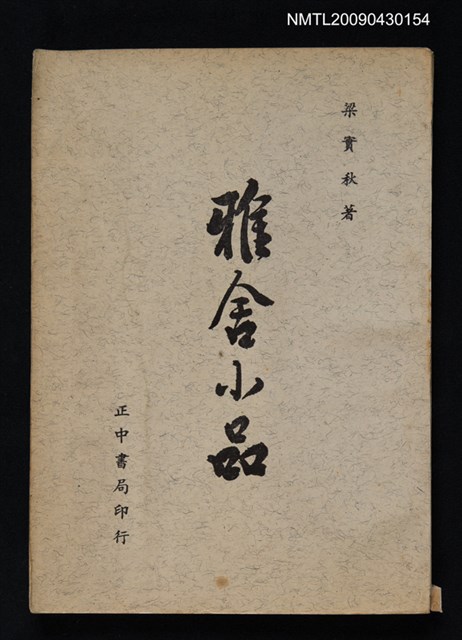 NMTL20090430154
梁實秋著
雅舍小品
正中書局印行